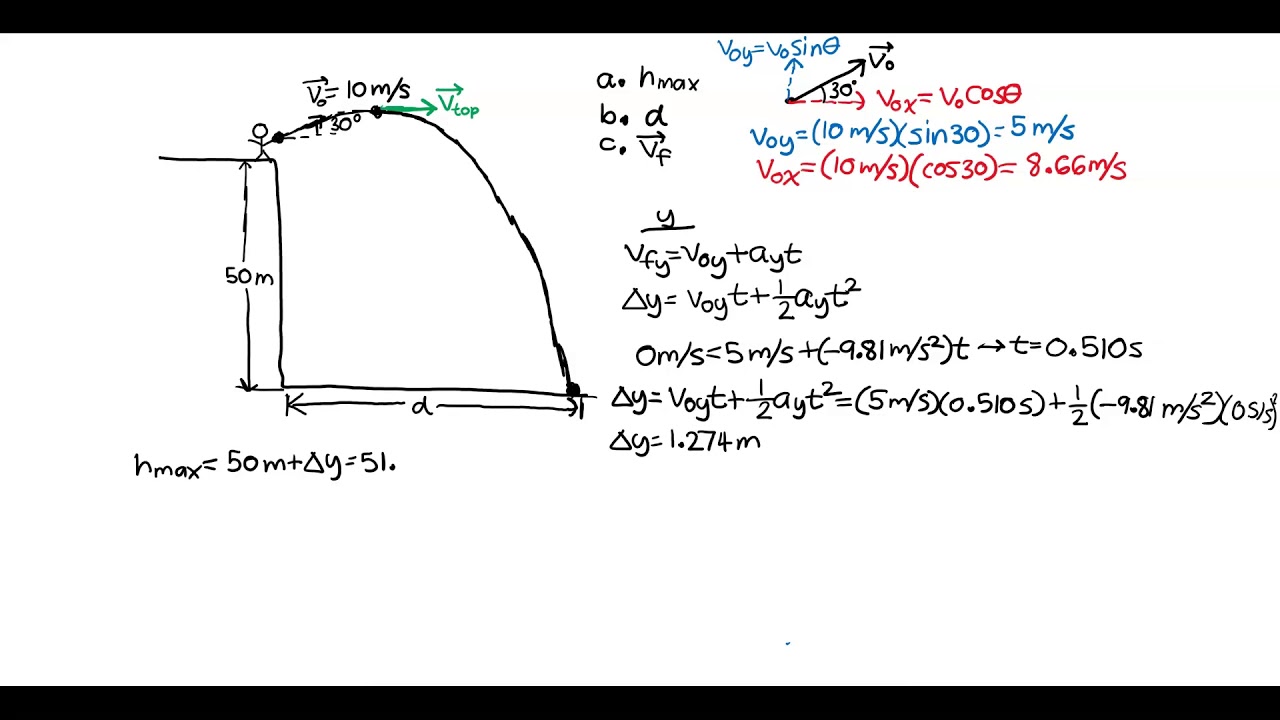 V⃗₀= 10 m/s
V⃗top
30°
50m
d
hmax= 50m+Δy=51.
a. hmax
b. d
c. V⃗f
Voy=V₀sinθ
V⃗₀
30°
Vox= V₀cosθ
Voy=(10 m/s)(sin30)=5 m/s
Vox=(10m/s)(cos30)= 8.66m/s
y
Vfy=Voy+ayt
Δy= Voyt+½ayt²
0m/s=5m/s+(-9.81m/s²)t→t=0.510s
Δy=Voyt+½ayt²=(5m/s)(0.510s)+½(-9.81m/s²)(0.51s)²
Δy=1.274m